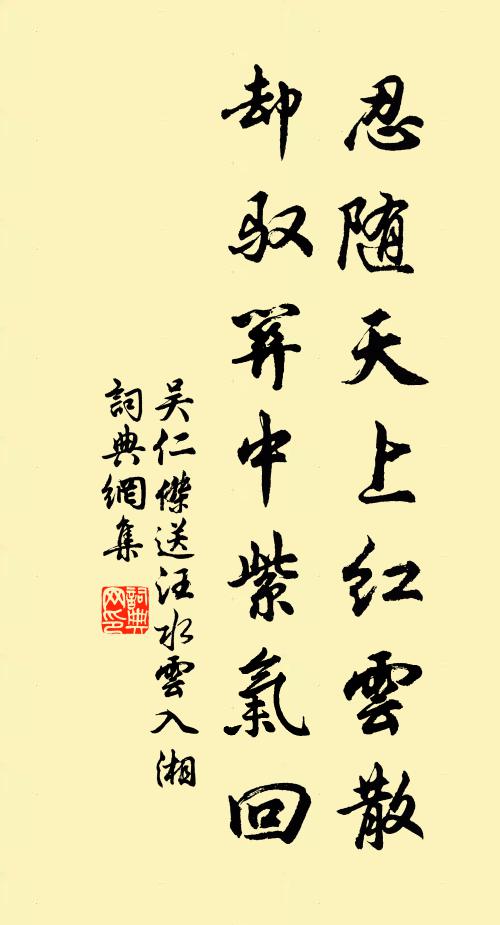 忍随天上红雲散
却驭关中紫氣回
吴仁傑送汪水雲入湘
詞典網集
詞典
网印